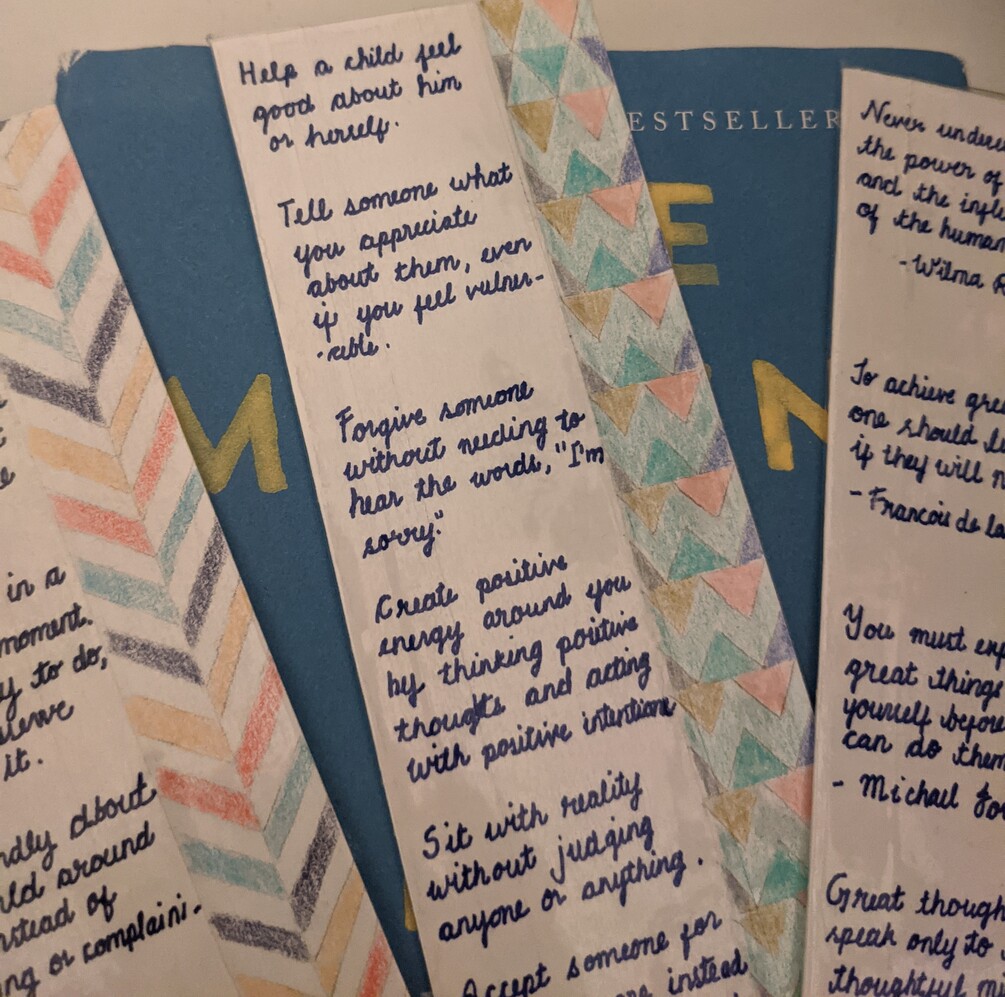 in a
moment.
to do,
it.
about
around
instead of
or complaini-
Help a child feel
good about him
or herself.
Tell someone what
you appreciate
about them, even
if you feel vulner-
-able.
Forgive someone
without needing to
hear the words, "I'm
sorry."
Create positive
energy around you
by thinking positive
thoughts and acting
with positive intentions
Sit with reality
without judging
anyone or anything.
Accept someone for
instead
BESTSELLER
E
M
N
Never
the power of
and the
of the human
-Wilma R
To achieve
one should
if they will
- Francois de la
You must
great things
yourself before
can do them
- Michael Jor
Great
speak only to
thoughtful